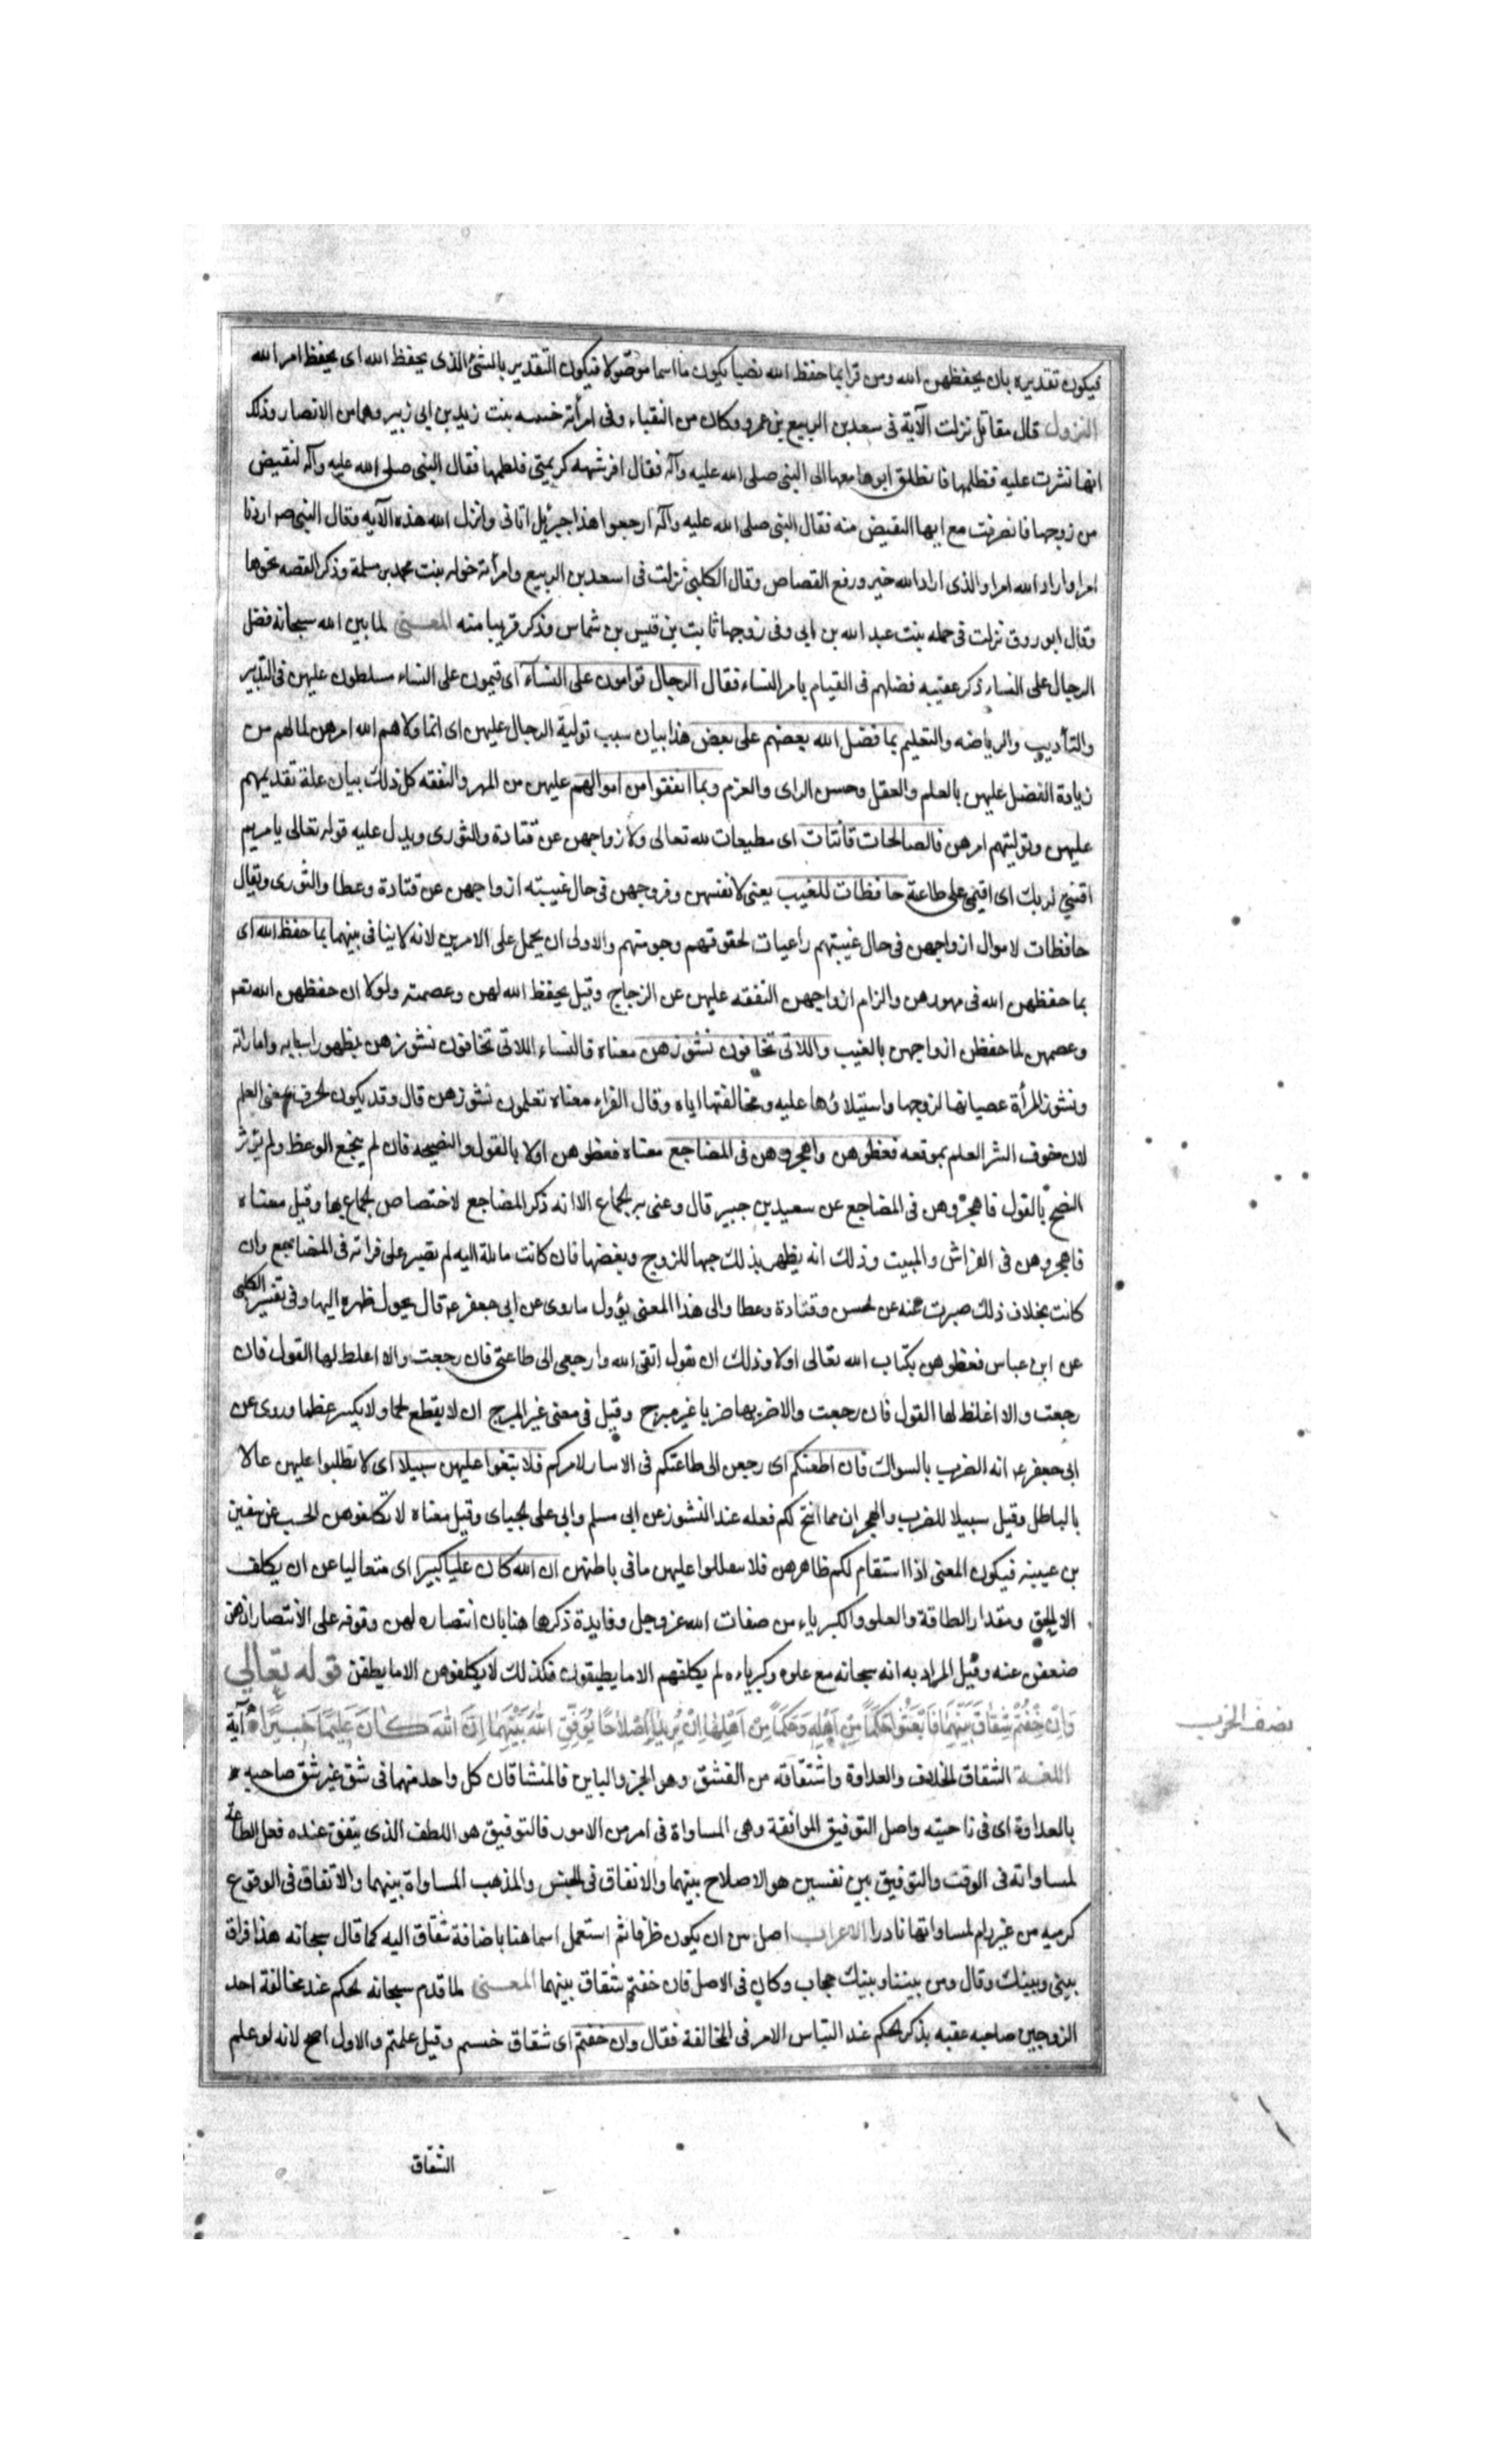 فيكون تقديره بان يحفظهن الله ومن قرا بما حفظ الله نصبا يكون ما اسما موصولا فيكون التقدير بالشئ الذى يحفظ الله اى يحفظ امر الله
النزول قال مقاتل نزلت الآية فى سعد بن الربيع بن عمرو وكان من النقباء وفى امرأته بنت زيد بن ابى زبير وهما من الانصار وذلك
انها نشزت عليه فلطمها فانطلق ابوها معها الى النبى صلى الله عليه وآله فقال افرشته كريمتى فلطمها فقال النبى صلى الله عليه وآله لتقبض
من زوجها فانصرفت مع ابيها القبض منه فقال النبى صلى الله عليه وآله ارجعوا هذا جبرئيل اتانى وانزل الله هذه الآيه فقال النبى صه اردنا
امرا واراد الله امرا والذى اراد الله خير ورفع القصاص وقال الكلبى نزلت فى اسعد بن الربيع وامرأته خوله بنت محمد بن مسلمة وذكر القصه نحوها
وقال ابو روق نزلت فى جمله بنت عبد الله بن ابى وفى زوجها ثابت بن قيس بن شماس وذكر قريبا منه المعنى لما بين الله سبحانه فضل
الرجال على النساء ذكر عقيبه فضلهم فى القيام بامر النساء فقال الرجال قوامون على النساء اى قيمون على النساء مسلطون عليهن فى التدبير
والتأديب والرياضه والتعليم بما فضل الله بعضهم على بعض هذا بيان سبب تولية الرجال عليهن اى انما ولاهم الله امرهن لما لهم من
زيادة الفضل عليهن بالعلم والعقل وحسن الراى والعزم وبما انفقوا من اموالهم عليهن من المهر والنفقه كل ذلك بيان علة تقديمهم
عليهن وتوليتهم امرهن فالصالحات قانتات اى مطيعات لله تعالى ولازواجهن عن قتادة والثورى ويدل عليه قوله تعالى يا مريم
اقنتى لربك اى اقيمى على طاعته حافظات للغيب يعنى لانفسهن وفروجهن فى حال غيبته ازواجهن عن قتادة وعطا والثورى ويقال
حافظات لاموال ازواجهن فى حال غيبتهم راعيات لحقوقهم وحرمتهم والاولى ان يحمل على الامرين لانه لا ينافى بينهما بما حفظ الله اى
بما حفظهن الله فى مهورهن والزام ازواجهن النفقه عليهن عن الزجاج وقيل يحفظ الله لهن وعصمته ولولا ان حفظهن الله تعه
وعصمهن لما حفظن ازواجهن بالغيب واللاتى تخافون نشوزهن معناه فالنساء اللاتى تخافون نشوزهن بظهور اسبابه واماراته
ونشوز المرأة عصيانها لزوجها واستيلاؤها عليه ومخالفتها اياه وقال الفراء معناه تعلمون نشوزهن قال وقد يكون الخوف بمعنى العلم
لان خوف النشز العلم بموقعه فعظوهن واهجروهن فى المضاجع معناه فعظوهن اولا بالقول والنصيحه فان لم ينجع الوعظ ولم يؤثر
النصح بالقول فاهجروهن فى المضاجع عن سعيد بن جبير قال وعنى به الجماع الا انه ذكر المضاجع لاختصاص الجماع بها وقيل معناه
فاهجروهن فى الفراش والمبيت وذلك انه يظهر بذلك حبها للزوج وبغضها فان كانت مائلة اليه لم تصبر على فراقه فى المضاجع وان
كانت بخلاف ذلك صبرت عنه عن الحسن وقتادة وعطا والى هذا المعنى يؤول ما روى عن ابى جعفر عه قال يحول ظهره اليها وفى تفسير الكلبى
عن ابن عباس فعظوهن بكتاب الله تعالى اولا وذلك ان يقول اتقى الله وارجعى الى طاعتى فان رجعت والا اغلظ لها القول فان
رجعت والا اغلظ لها القول فان رجعت والا ضربها ضربا غير مبرح وقيل فى معنى غير المبرح ان لا يقطع لحما ولا يكسر عظما وروى عن
ابى جعفر عه انه الضرب بالسواك فان اطعنكم اى رجعن الى طاعتكم فى لامركم فلا تبغوا عليهن سبيلا اى لا تطلبوا عليهن عالا
بالباطل وقيل سبيلا للضرب والهجران مما ابيح لكم فعله عند النشوز عن ابى مسلم وابى على الجبائى وقيل معناه لا تكلفوهن الحب عن سفين
بن عيينه فيكون المعنى اذا استقام لكم ظاهرهن فلا تعللوا عليهن ما فى باطنهن ان الله كان عليا كبيرا اى متعاليا عن ان يكلف
الا بالحق ومقدار الطاقة والعلو والكبرياء من صفات الله عز وجل وفايدة ذكرها هنا بيان انتصاره لهن وقوته على الانتصار ان هن
ضعفن عنه وقيل المراد به انه سبحانه مع علوه وكبرياءه لم يكلفهم الا ما يطيقون فكذلك لا يكلفوهن الا ما يطقن قوله تعالى
وَاِنْ خِفْتُمْ شِقَاقَ بَيْنِهِمَا فَابْعَثُوا حَكَمًا مِنْ اَهْلِهِ وَحَكَمًا مِنْ اَهْلِهَا اِنْ يُرِيدَا اِصْلَاحًا يُوَفِّقِ اللهُ بَيْنَهُمَا اِنَّ اللهَ كَانَ عَلِيمًا خَبِيرًا آية
اللغة الشقاق الخلاف والعداوة واشتقاقه من الشق وهو الجزء الباين فالمتشاقان كل واحد منهما فى شق غير شق صاحبه
بالعداوة اى فى ناحيته واصل التوفيق الموافقة وهى المساواة فى امر من الامور فالتوفيق هو اللطف الذى يتفق عنده فعل الطاعة
لمساواته فى الوقت والتوفيق بين نفسين هو الاصلاح بينهما والاتفاق فى الجنس والمذهب المساواة بينهما والاتفاق فى الوقوع
كرميه من غير رام لمساواتها نادرا الاعراب اصل بين ان يكون ظرفا ثم استعمل اسما هنا باضافة شقاق اليه كما قال سبحانه هذا فراق
بينى وبينك وقال ومن بيننا وبينك حجاب وكان فى الاصل فان خفتم شقاق بينهما المعنى لما قدم سبحانه الحكم عند مخالفة احد
الزوجين صاحبه عقبه بذكر الحكم عند التباس الامر فى المخالفة فقال وان خفتم اى شقاق خسم وقيل علمتم والاول اصح لانه لو علم
نصف الحزب
الشقاق